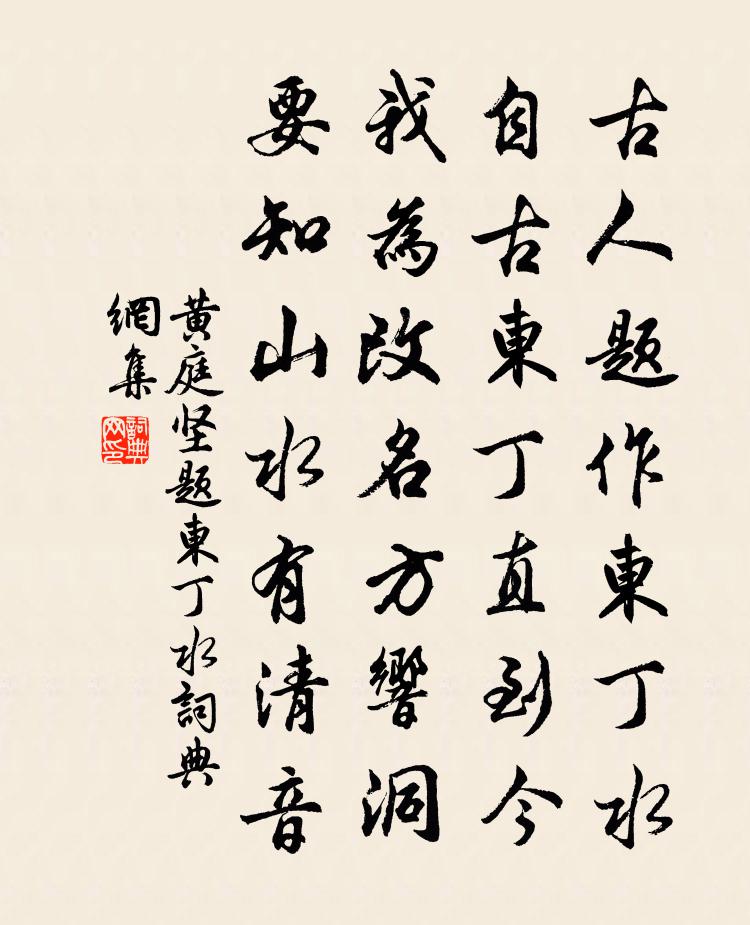 古人題作東丁水
自古東丁直到今
我為改名方響洞
要知山水有清音
黄庭坚題東丁水詞典
網集
詞典
网印